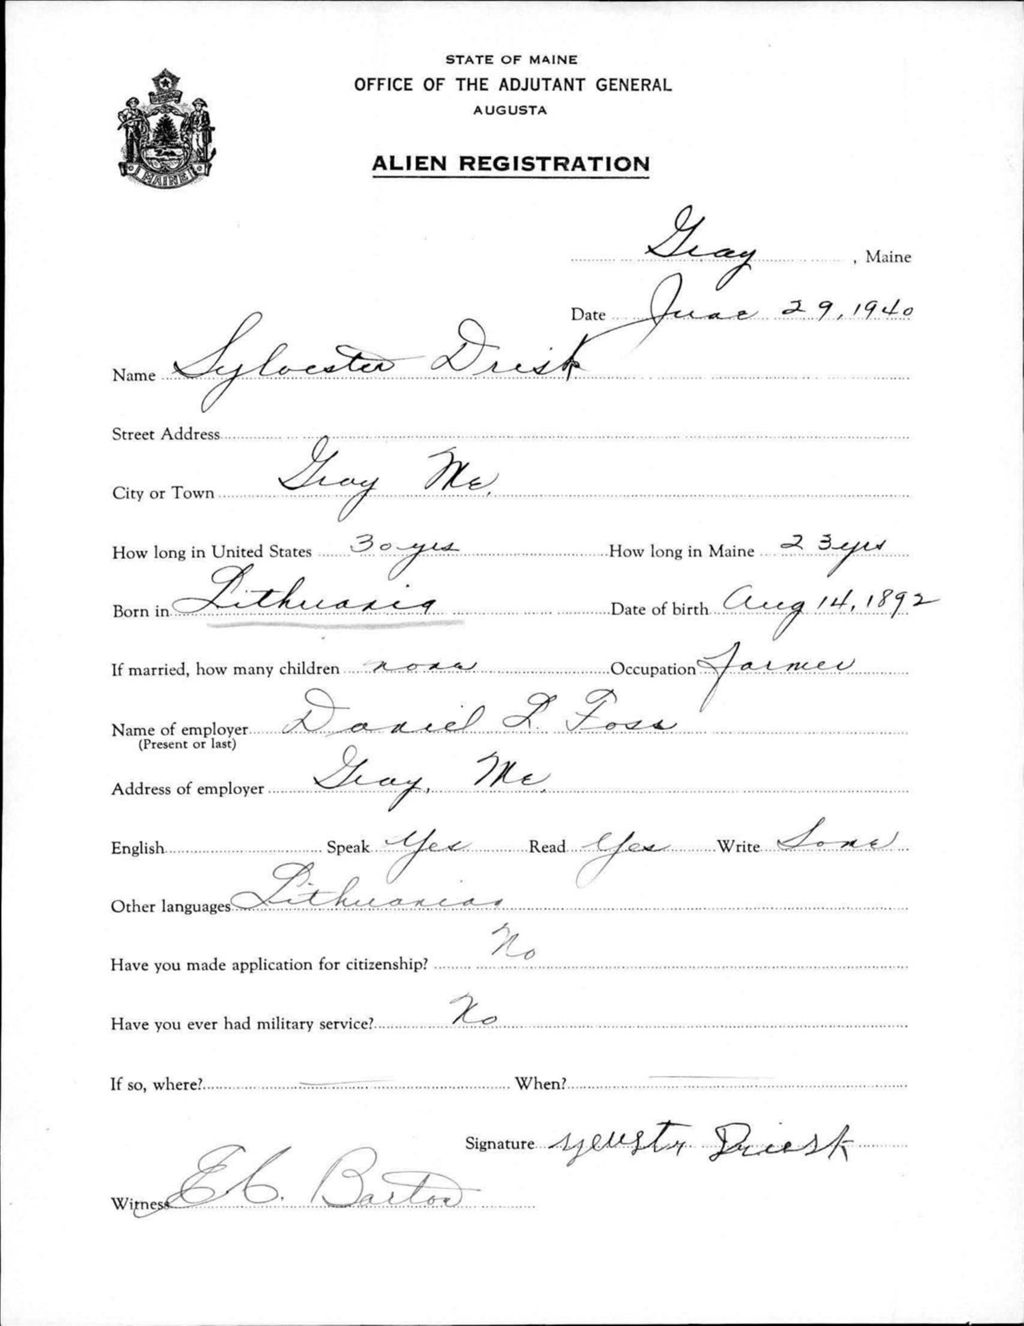 STATE OF MAINE
OFFICE OF THE ADJUTANT GENERAL
AUGUSTA
MAINE
ALIEN REGISTRATION
Gray, Maine
Date June 29, 1940
Name Sylvester Drisk
Street Address
City or Town Gray Me.
How long in United States 30 yrs How long in Maine 23 yrs
Born in Lithuania Date of birth Aug 14, 1892
If married, how many children none Occupation Farmer
Name of employer Daniel L. Foss
(Present or last)
Address of employer Gray, Me.
English Speak Yes Read Yes Write Some
Other languages Lithuanian
Have you made application for citizenship? No
Have you ever had military service? No
If so, where? — When? —
Signature
Witness E C. Barton